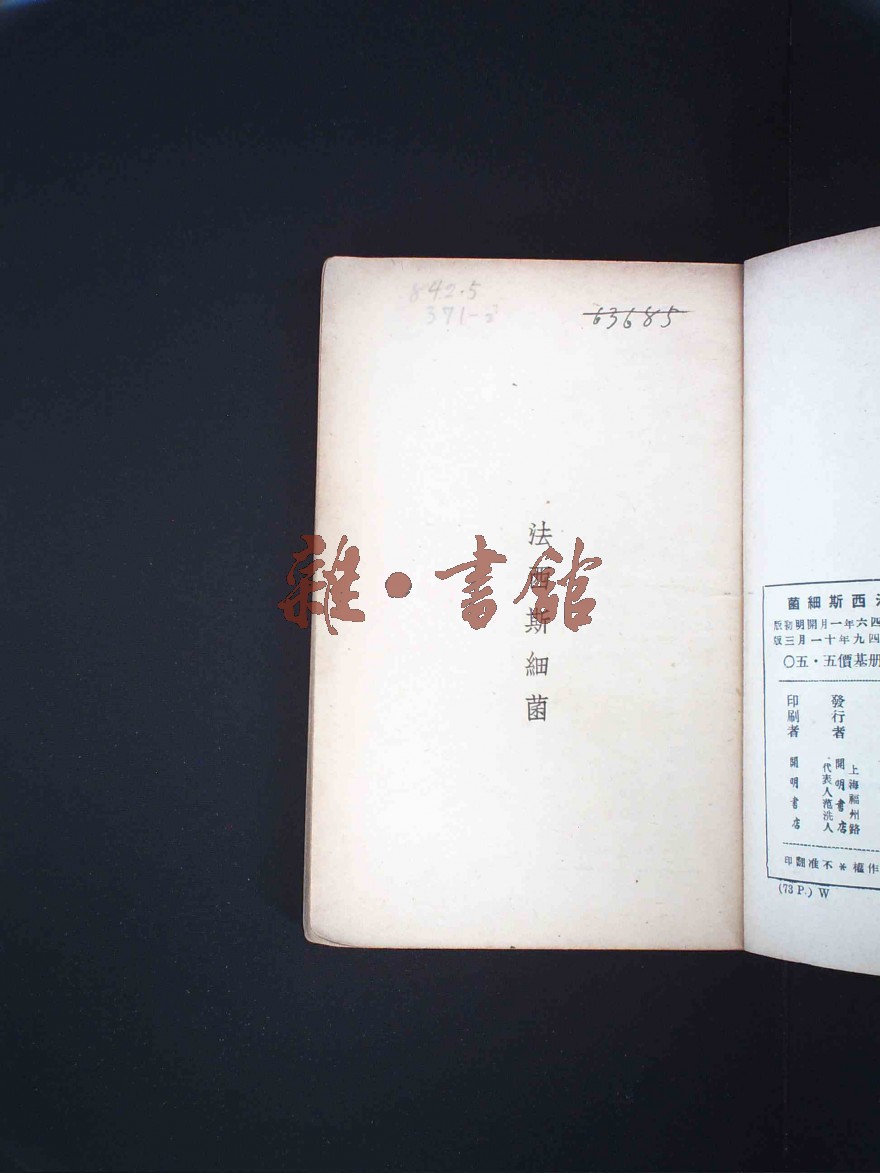 842.5
371-2
63685
法西斯細菌
雜·書館
菌細斯西法
版初明開月一年六四
版三月一十年九四
〇五·五價基册
發行者
上海福州路
開明書店
代表人范洗人
印刷者
開明書店
印翻准不＊權作
(73 P.) W